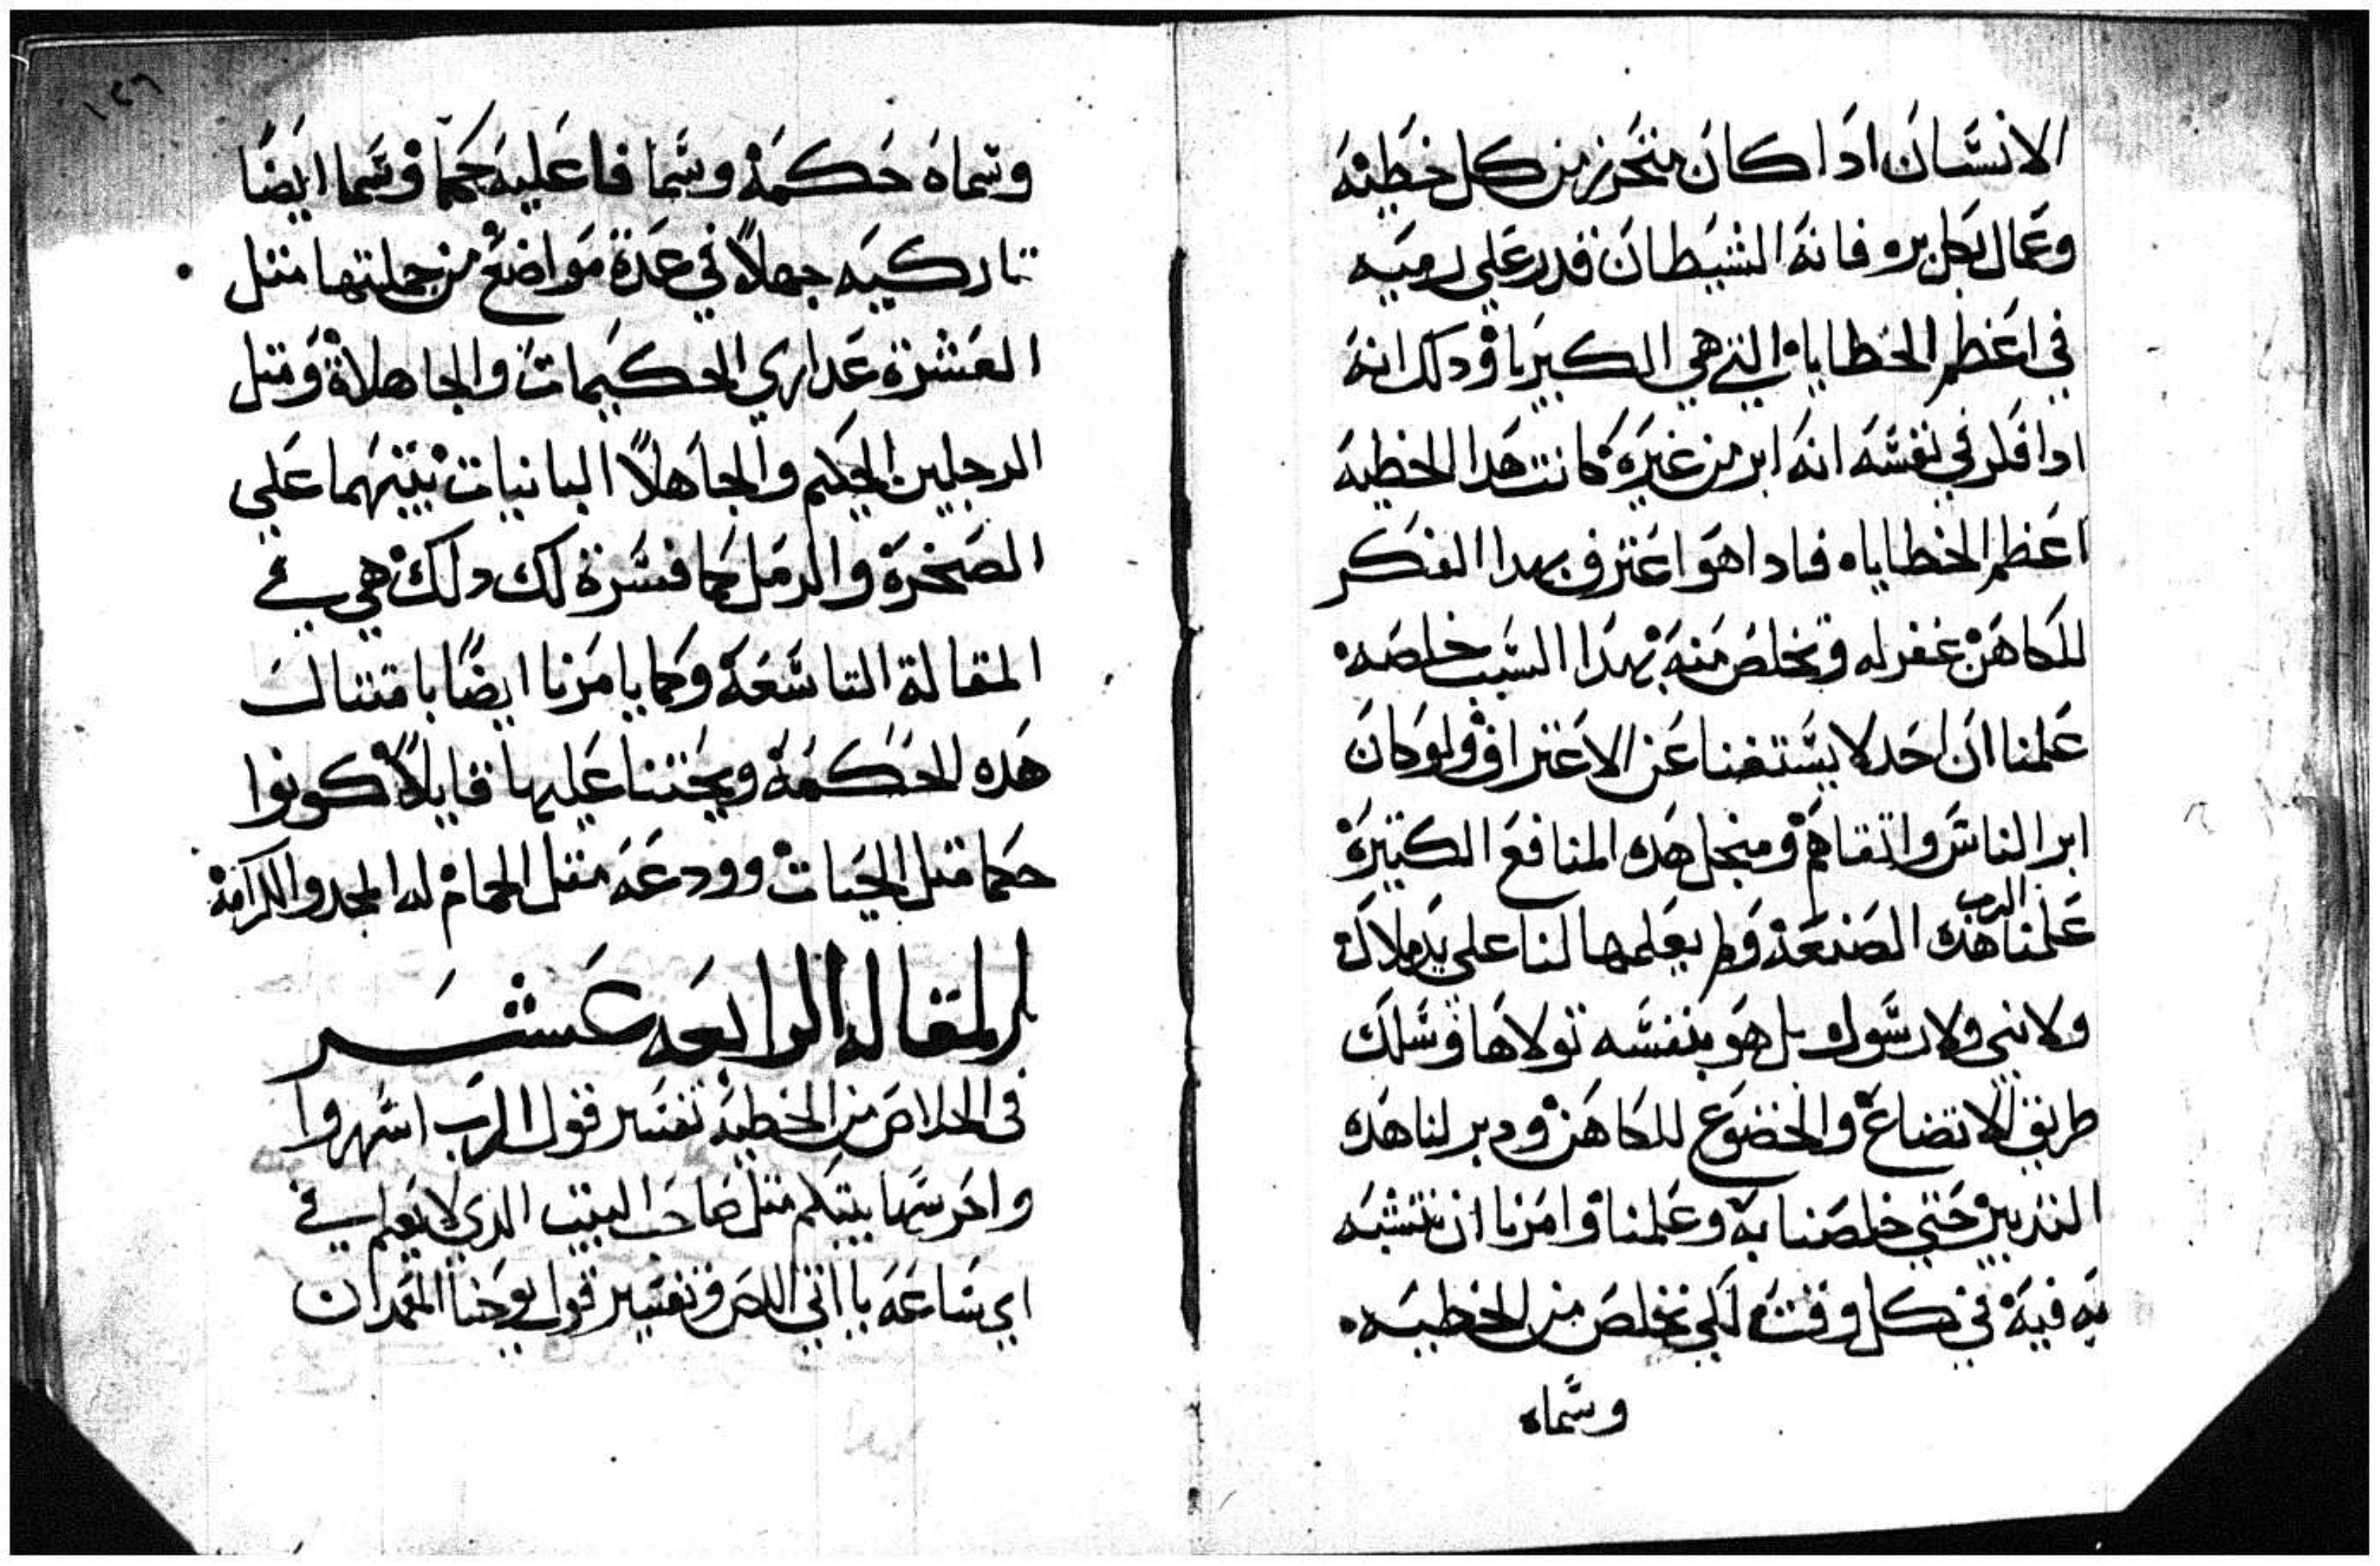 الانسان ادا كان متحرز من كل خطيه
وعمال بكل بر وفانه الشيطان قدر علي رميه
في اعظم الخطاياه التي هي الكبريا ودلك انه
ادا فكر في نفسه انه ابر من غيره كانت هدا الخطيه
اعظم الخطاياه فادا هو اعترف بهدا الفكر
للكاهن غفر له وتخلص منه بهدا السبب خلصه
علمنا ان احد لا يستغنا عن الاعتراف ولو كان
ابر الناس واتقاهم ومنجل هده المنافع الكتيرة
علمنا الرب هده الصنعة ولم يعلمها لنا علي يد ملاك
ولا نبي ولا رسول بل هو بنفسه تولاها وسلك
طريق الاتضاع والخضوع للكاهن ودبر لنا هده
التدبير حتي خلصنا به وعلمنا وامرنا ان نتشبه
به فيه في كل وقت لكي نخلص من الخطيه
وسماه
١٢٦
وسماه حكمة وسما فاعليه حكما وسما ايضا
تاركيه جهلاً في عدة مواضع من جملتها متل
العشرة عداري الحكيمات والجاهلاة ومتل
الرجلين الحكيم والجاهلاً البانيات بيتهما علي
الصخرة والرمل كما فسرة لك دلك هي في
المقالة التاسعة وكما يامرنا ايضاً بامتتال
هده الحكمة ويحتنا عليها قايلاً كونوا
حكما متل الحيات وودعه متل الحمام له المجد والكرامة
المقاله الرابعه عشر
في الخلاص من الخطية تفسير قول الرب اسهروا
واحرسها يتكلم متل صاحب البيت الدي لا يعلم في
اي ساعه ياتي اللص وتفسير قول يوحنا المعمدان